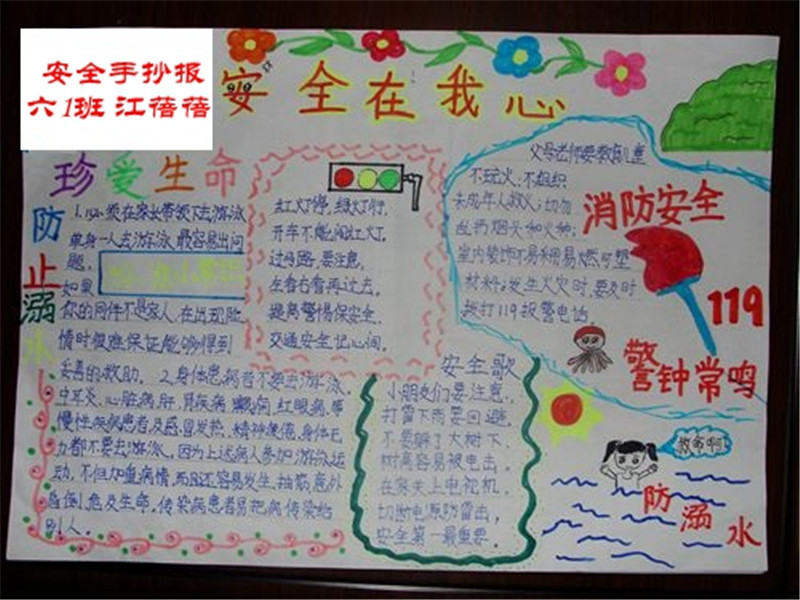 安全手抄报
六1班 江蓓蓓
安全在我心
珍爱生命
防止溺水
1. 必须在家长带领下去游泳
单身一人去游泳最容易出问
题。
如果
你的同伴不是家人,在出现险
情时很难保证能够得到
妥善的救助。2.身体患病者不要去游泳。
中耳炎、心脏病、肝、肾疾病、癫痫、红眼病、等
慢性疾病患者,及感冒发热、精神疲倦、身体无
力都不要去游泳。因为上述病人参加游泳运
动,不但加重病情,而且还容易发生,抽筋、意外
昏倒、危及生命,传染病患者易把病传染给
别人。
红灯停,绿灯行,
开车不能闯红灯。
过马路,要注意,
左看右看再过去。
提高警惕保安全。
交通安全记心间。
父母老师要教育儿童
不玩火,不组织
未成年人救火;切勿
乱扔烟头和火种;
室内装饰不易采用易燃可塑
材料;发生火灾时,要及时
拨打119报警电话。
消防安全
119
警钟常鸣
安全歌
小朋友们要注意
打雷下雨要回避。
不要躲了大树下,
树高容易被电击。
在家关上电视机,
切断电源防雷击,
安全第一最重要。
救命啊!
防溺水